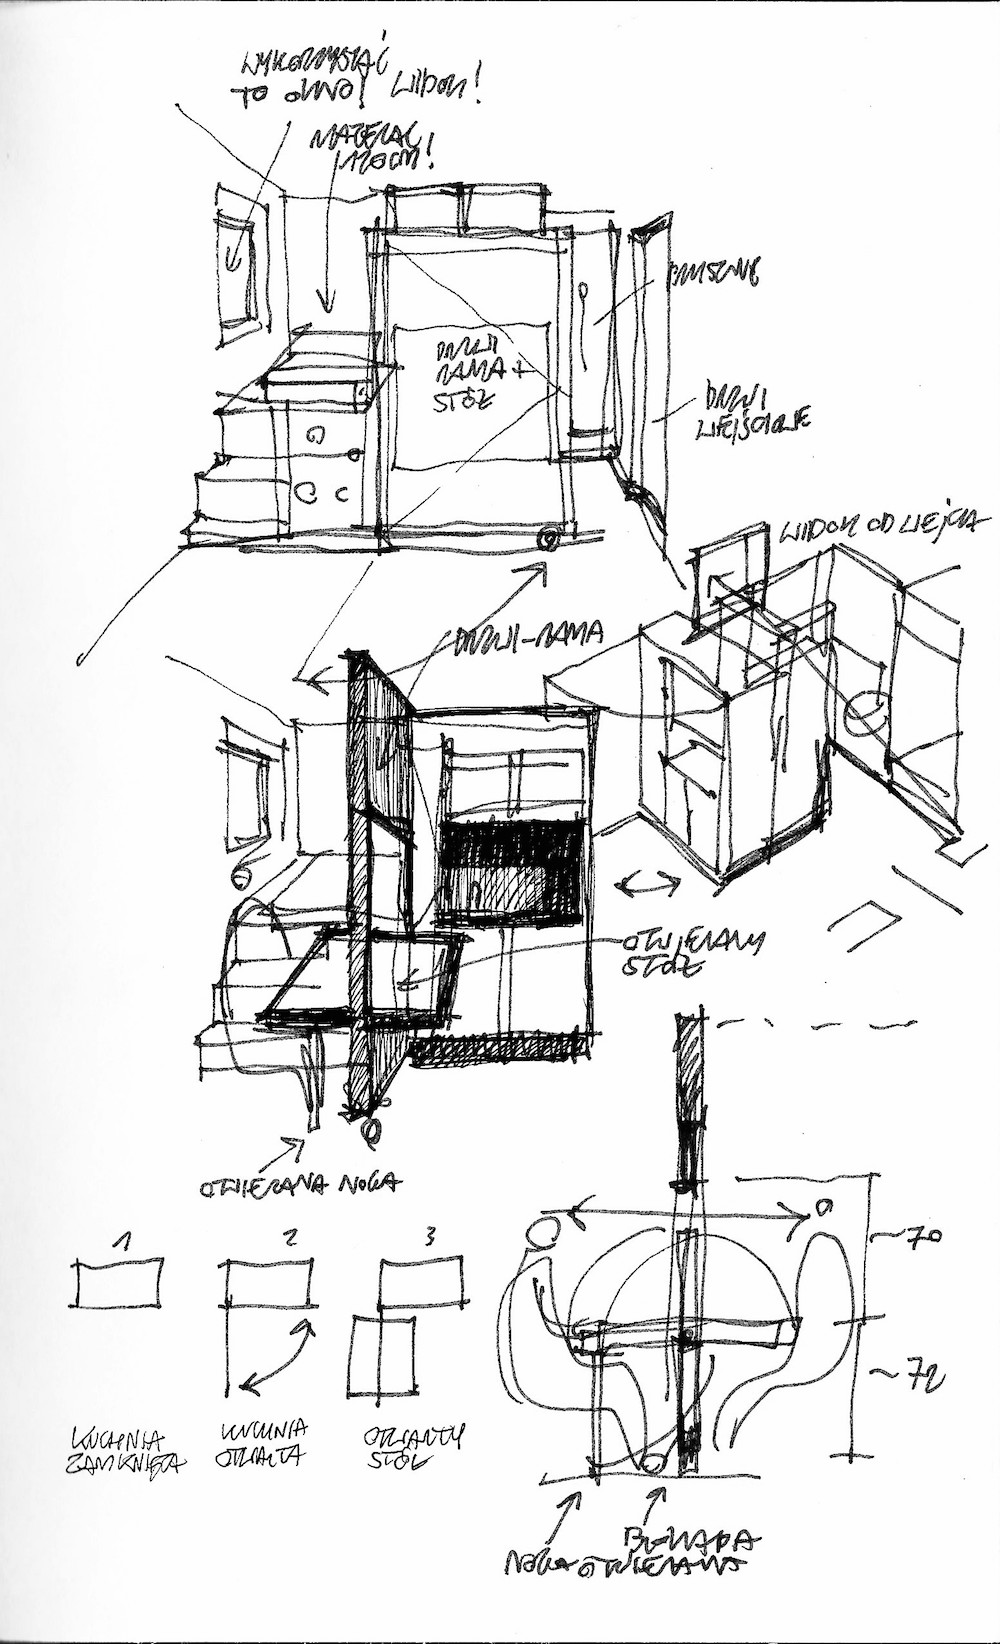 WYKORZYSTAĆ
TO OKNO! WIDOK!
MATERAC
120CM!
DRZWI
RAMA +
STÓŁ
DRZWI
WEJŚCIOWE
WIDOK OD WEJŚCIA
DRZWI-RAMA
OTWIERANY
STÓŁ
OTWIERANA NOGA
1
2
3
KUCHNIA
ZAMKNIĘTA
KUCHNIA
OTWARTA
OTWARTY
STÓŁ
~70
~72
BLOKADA
NOGA OTWIERANA